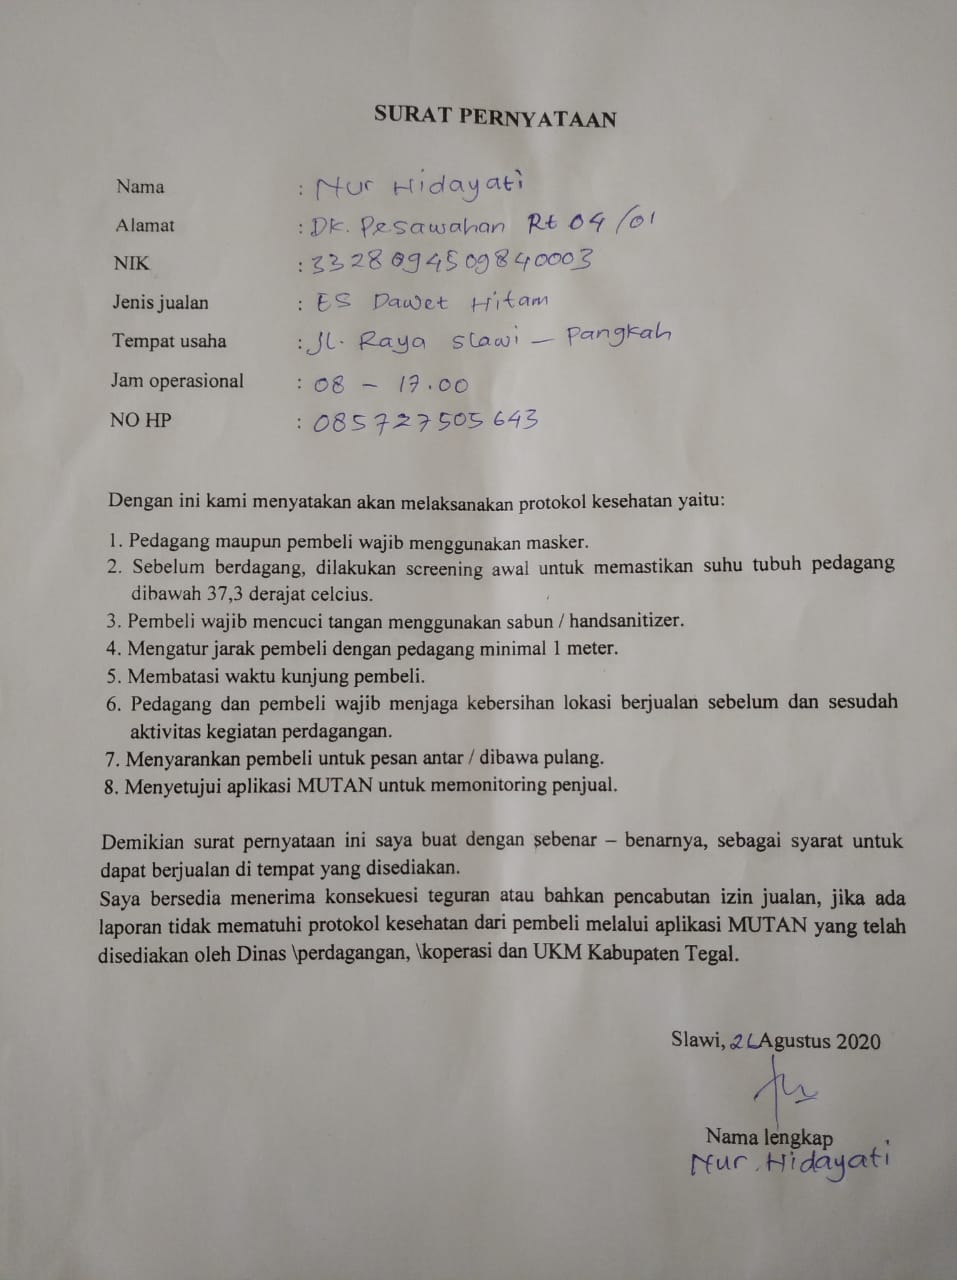 SURAT PERNYATAAN
Nama : Nur Hidayati
Alamat : DK. Pesawahan Rt 04/01
NIK : 3328094509840003
Jenis jualan : ES Dawet Hitam
Tempat usaha : JL. Raya Slawi – Pangkah
Jam operasional : 08 – 17.00
NO HP : 085727505643
Dengan ini kami menyatakan akan melaksanakan protokol kesehatan yaitu:
1. Pedagang maupun pembeli wajib menggunakan masker.
2. Sebelum berdagang, dilakukan screening awal untuk memastikan suhu tubuh pedagang
dibawah 37,3 derajat celcius.
3. Pembeli wajib mencuci tangan menggunakan sabun / handsanitizer.
4. Mengatur jarak pembeli dengan pedagang minimal 1 meter.
5. Membatasi waktu kunjung pembeli.
6. Pedagang dan pembeli wajib menjaga kebersihan lokasi berjualan sebelum dan sesudah
aktivitas kegiatan perdagangan.
7. Menyarankan pembeli untuk pesan antar / dibawa pulang.
8. Menyetujui aplikasi MUTAN untuk memonitoring penjual.
Demikian surat pernyataan ini saya buat dengan sebenar – benarnya, sebagai syarat untuk
dapat berjualan di tempat yang disediakan.
Saya bersedia menerima konsekuesi teguran atau bahkan pencabutan izin jualan, jika ada
laporan tidak mematuhi protokol kesehatan dari pembeli melalui aplikasi MUTAN yang telah
disediakan oleh Dinas \perdagangan, \koperasi dan UKM Kabupaten Tegal.
Slawi, Agustus 2020
Nama lengkap
Nur Hidayati